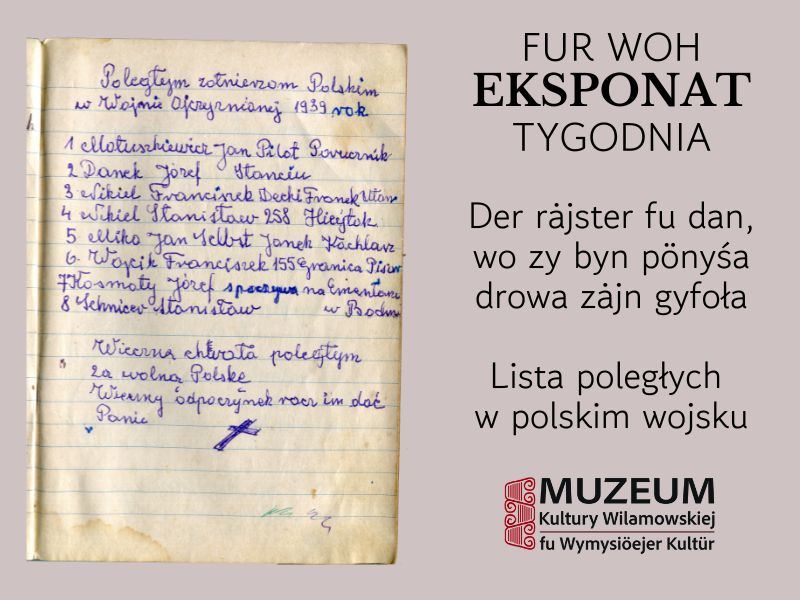 Poległym rołnierzom Polskim
w Wojnie Ojczyznianej 1939 rok
1 Matuszkiewicz Jan Pilot Porucznik
2 Danek Józef Stanciu
3 Nikiel Franciszek Decki Franek Utan
4 Nikiel Stanisław 258 Hicyjtok
5 Mika Jan Selbst Janek Kochlarz
6 Wojcik Franciszek 155 Granica
7 Kosmaty Józef spoczywa na
8 Schnicer Stanisław w
Wieczna chwała poległym
za wolną Polskę
Wieczny odpoczynek racz im dać
Panie
FUR WOH
EKSPONAT
TYGODNIA
Der rȧjster fu dan,
wo zy byn pönyśa
drowa zȧjn gyfoła
Lista poległych
w polskim wojsku
MUZEUM
Kultury Wilamowskiej
fu Wymysiöejer Kultür